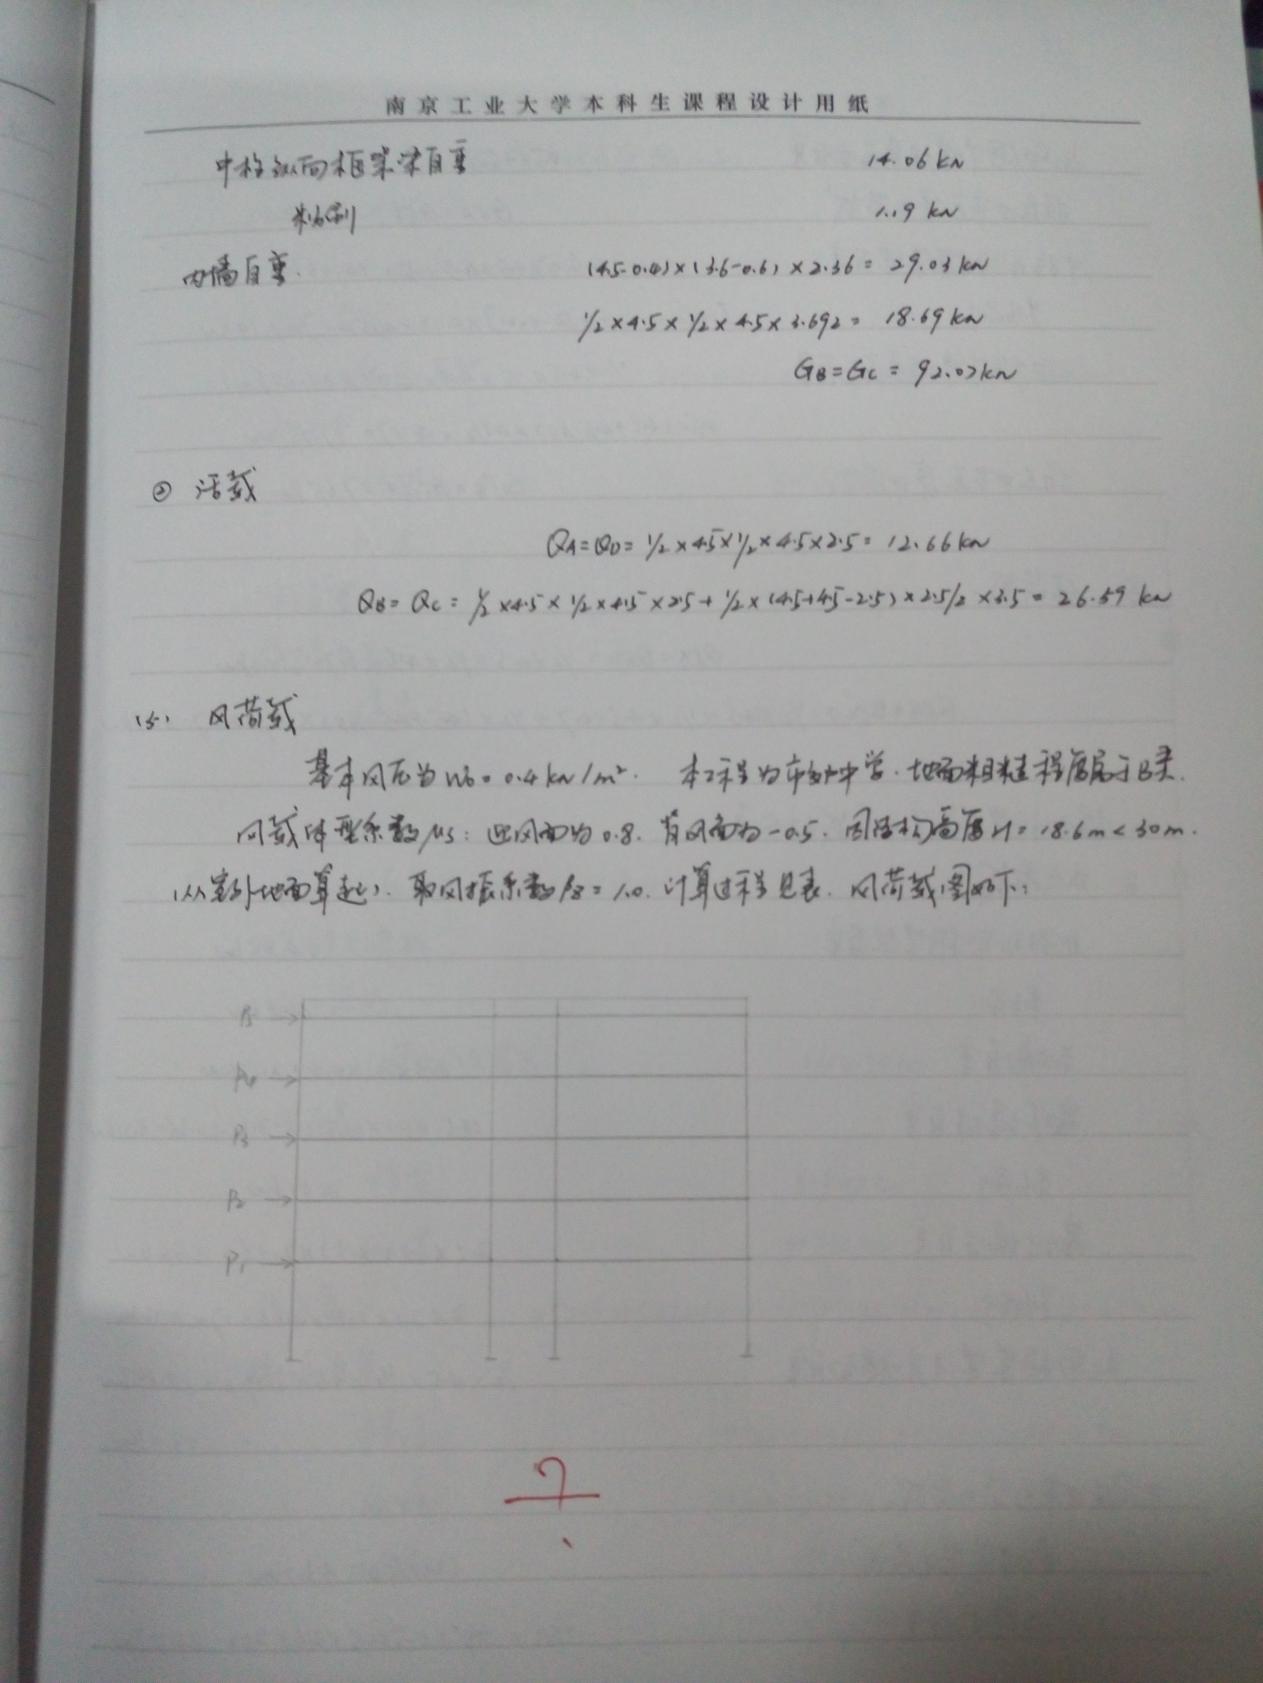 南京工业大学本科生课程设计用纸
中柱纵向框架梁自重 14.06 kN
粉刷 1.19 kN
内墙自重. (4.5-0.4)×(3.6-0.6)×2.36= 29.03 kN
1/2×4.5×1/2×4.5×3.692= 18.69 kN
GB=GC= 92.07 kN
② 活载
QA=QD= 1/2×4.5×1/2×4.5×2.5= 12.66 kN
QB= QC= 1/2×4.5×1/2×4.5×2.5+1/2×(4.5+4.5-2.5)×2.5/2×3.5= 26.59 kN
(5) 风荷载
基本风压为w0=0.4kN/m². 本工程为市中学.地面粗糙程度属于B类.
风载体型系数μs: 迎风面为0.8. 背风面为-0.5. 因结构高度H=18.6m<30m.
(从室外地面算起). 取风振系数βz=1.0. 计算过程见表. 风荷载图如下:
P5
P4
P3
P2
P1
?